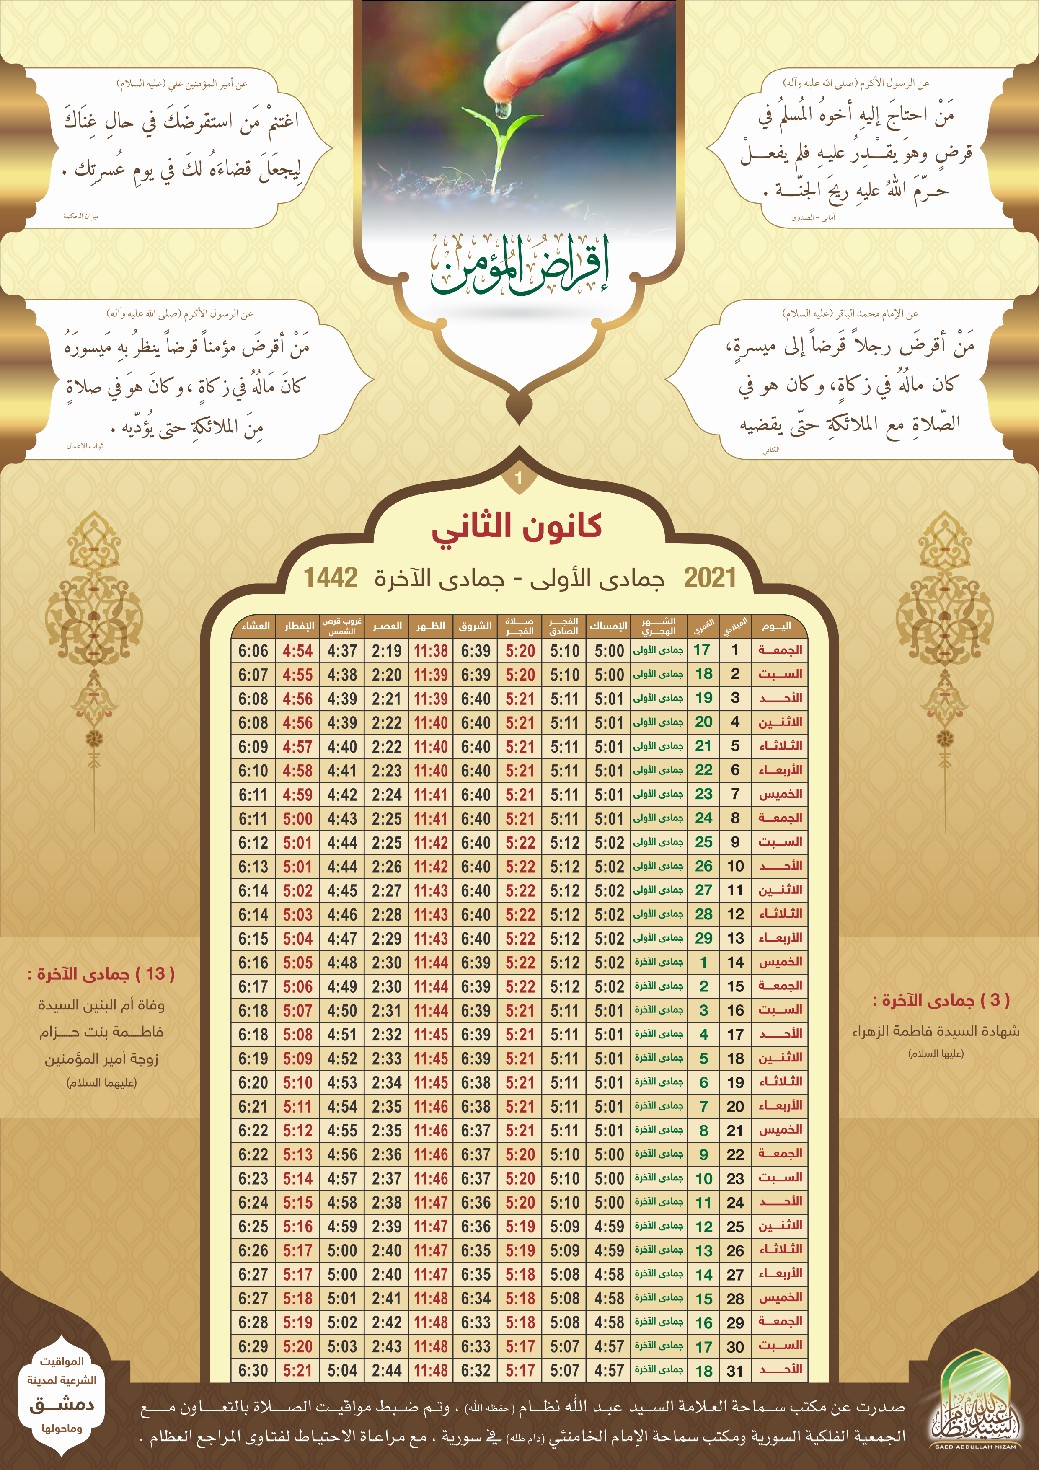 عن الرسول الأكرم (صلى الله عليه وآله)
مَنْ احتاجَ إليهِ أخوهُ المُسلمُ في
قرضٍ وهوَ يقـْـدِرُ عليـهِ فلم يفعـــلْ
حـرّمَ اللهُ عليهِ ريحَ الجنّـــة .
أمالي - الصدوق
عن أمير المؤمنين علي (عليه السلام)
اغتنمْ مَن استقرضَكَ في حالِ غِنَاكَ
لِيجعَلَ قضاءَه لكَ في يومِ عُسرتِك .
ميزان الحكمة
إقراض المؤمن
عن الإمام محمد الباقر (عليه السلام)
مَنْ أقرضَ رجلاً قَرضاً إلى ميسرةٍ،
كان مالُهُ في زكاةٍ، وكان هو في
الصّلاةِ مع الملائكةِ حتّى يقضيه
الكافي
عن الرسول الأكرم (صلى الله عليه وآله)
مَنْ أقرضَ مؤمناً قرضاً ينظرُ بهِ مَيسورَهُ
كانَ مَالُهُ في زكاةٍ ، وكانَ هوَ في صلاةٍ
مِنَ الملائكةِ حتى يُؤدّيه .
ثواب الأعمال
1
كانون الثاني
2021 جمادى الأولى - جمادى الآخرة 1442
اليـوم الميلادي القمري الشـهر الهجري الإمساك الفجـر الصادق صـلاة الفجـر الشروق الظـهر العصـر غروب قرص الشمس الإفطار العشاء
الجمعـة 1 17 جمادى الأولى 5:00 5:10 5:20 6:39 11:38 2:19 4:37 4:54 6:06
السـبت 2 18 جمادى الأولى 5:00 5:10 5:20 6:39 11:39 2:20 4:38 4:55 6:07
الأحـــد 3 19 جمادى الأولى 5:01 5:11 5:21 6:40 11:39 2:21 4:39 4:56 6:08
الاثنـين 4 20 جمادى الأولى 5:01 5:11 5:21 6:40 11:40 2:22 4:39 4:56 6:08
الثلاثـاء 5 21 جمادى الأولى 5:01 5:11 5:21 6:40 11:40 2:22 4:40 4:57 6:09
الأربعـاء 6 22 جمادى الأولى 5:01 5:11 5:21 6:40 11:40 2:23 4:41 4:58 6:10
الخميس 7 23 جمادى الأولى 5:01 5:11 5:21 6:40 11:41 2:24 4:42 4:59 6:11
الجمعـة 8 24 جمادى الأولى 5:01 5:11 5:21 6:40 11:41 2:25 4:43 5:00 6:11
السـبت 9 25 جمادى الأولى 5:02 5:12 5:22 6:40 11:42 2:25 4:44 5:01 6:12
الأحـــد 10 26 جمادى الأولى 5:02 5:12 5:22 6:40 11:42 2:26 4:44 5:01 6:13
الاثنـين 11 27 جمادى الأولى 5:02 5:12 5:22 6:40 11:43 2:27 4:45 5:02 6:14
الثلاثـاء 12 28 جمادى الأولى 5:02 5:12 5:22 6:40 11:43 2:28 4:46 5:03 6:14
الأربعـاء 13 29 جمادى الأولى 5:02 5:12 5:22 6:40 11:43 2:29 4:47 5:04 6:15
الخميس 14 1 جمادى الآخرة 5:02 5:12 5:22 6:39 11:44 2:30 4:48 5:05 6:16
الجمعـة 15 2 جمادى الآخرة 5:02 5:12 5:22 6:39 11:44 2:30 4:49 5:06 6:17
السـبت 16 3 جمادى الآخرة 5:01 5:11 5:21 6:39 11:44 2:31 4:50 5:07 6:18
الأحـــد 17 4 جمادى الآخرة 5:01 5:11 5:21 6:39 11:45 2:32 4:51 5:08 6:18
الاثنـين 18 5 جمادى الآخرة 5:01 5:11 5:21 6:39 11:45 2:33 4:52 5:09 6:19
الثلاثـاء 19 6 جمادى الآخرة 5:01 5:11 5:21 6:38 11:45 2:34 4:53 5:10 6:20
الأربعـاء 20 7 جمادى الآخرة 5:01 5:11 5:21 6:38 11:46 2:35 4:54 5:11 6:21
الخميس 21 8 جمادى الآخرة 5:01 5:11 5:21 6:37 11:46 2:35 4:55 5:12 6:22
الجمعـة 22 9 جمادى الآخرة 5:00 5:10 5:20 6:37 11:46 2:36 4:56 5:13 6:22
السـبت 23 10 جمادى الآخرة 5:00 5:10 5:20 6:37 11:46 2:37 4:57 5:14 6:23
الأحـــد 24 11 جمادى الآخرة 5:00 5:10 5:20 6:36 11:47 2:38 4:58 5:15 6:24
الاثنـين 25 12 جمادى الآخرة 4:59 5:09 5:19 6:36 11:47 2:39 4:59 5:16 6:25
الثلاثـاء 26 13 جمادى الآخرة 4:59 5:09 5:19 6:35 11:47 2:40 5:00 5:17 6:26
الأربعـاء 27 14 جمادى الآخرة 4:58 5:08 5:18 6:35 11:47 2:40 5:00 5:17 6:27
الخميس 28 15 جمادى الآخرة 4:58 5:08 5:18 6:34 11:48 2:41 5:01 5:18 6:27
الجمعـة 29 16 جمادى الآخرة 4:58 5:08 5:18 6:33 11:48 2:42 5:02 5:19 6:28
السـبت 30 17 جمادى الآخرة 4:57 5:07 5:17 6:33 11:48 2:43 5:03 5:20 6:29
الأحـــد 31 18 جمادى الآخرة 4:57 5:07 5:17 6:32 11:48 2:44 5:04 5:21 6:30
( 3 ) جمادى الآخرة :
شهادة السيدة فاطمة الزهراء
(عليها السلام)
( 13 ) جمادى الآخرة :
وفاة أم البنين السيدة
فاطـــمة بنت حـــزام
زوجة أمير المؤمنين
(عليهما السلام)
صدرت عن مكتب سماحة العلامة السيد عبد الله نظـام (حفظه الله) ، وتـم ضبـط مواقيـت الصـلاة بالتعـــاون مــع
الجمعية الفلكية السورية ومكتب سماحة الإمام الخامنئي (دام ظله) في سورية ، مع مراعاة الاحتياط لفتاوى المراجع العظام .
المواقيت
الشرعية لمدينة
دمشــق
وماحولها
السيد عبد الله نظام
SAED ABDULLAH NIZAM